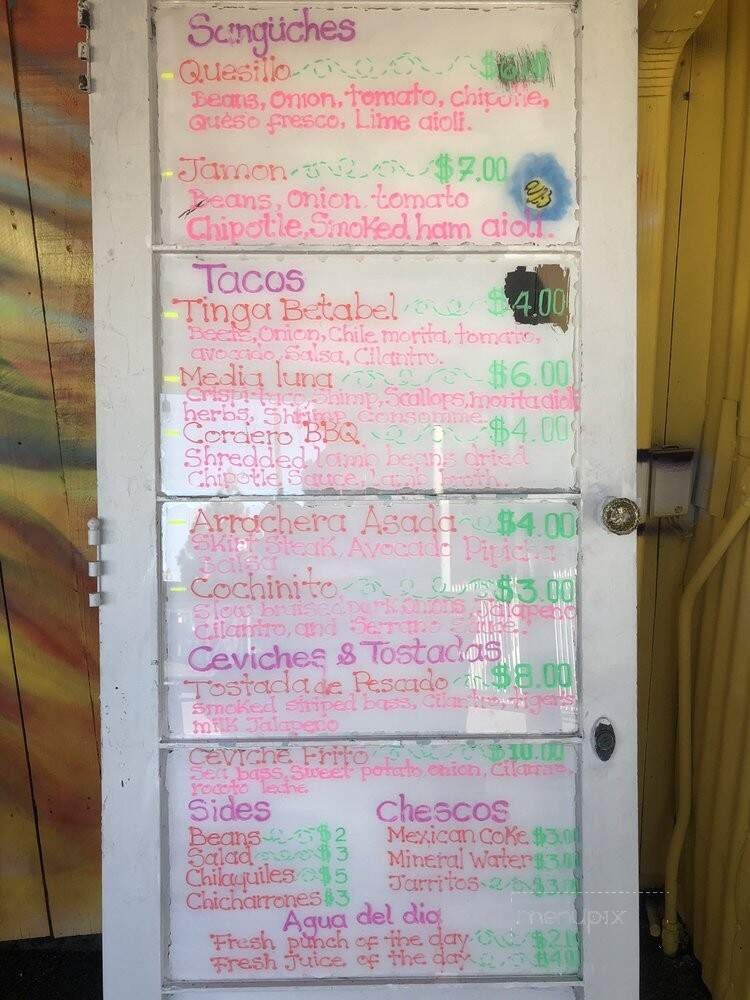 Sangüches
Quesillo
Beans, Onion, tomato, chipotle,
Queso fresco, Lime aioli.
Jamon $7.00
Beans, Onion tomato
Chipotle, Smoked ham aioli.
Tacos
Tinga Betabel $4.00
Beets, Onion, Chile morita, tomato,
avocado, Salsa, Cilantro.
Media luna $6.00
Crispi taco, Shimp, Scallops, morita aioli
herbs, Shrimp Consomme
Cordero BBQ $4.00
Shredded lamb beans dried
Chipotle Sauce, lamb broth.
Arrachera Asada $4.00
Skirt Steak, Avocado Pipicha
Salsa
Cochinito $3.00
Slow bruised pork onions, Jalapeño
Cilantro, and Serrano Sauce.
Ceviches & Tostadas
Tostada de Pescado $8.00
Smoked striped bass, Cilantro tigers
milk Jalapeño
Ceviche Frito $10.00
Sea bass, Sweet potato, onion, Cilantro,
rocoto leche
Sides Chescos
Beans $2 Mexican Coke $3.00
Salad $3 Mineral Water $3.00
Chilaquiles $5 Jarritos $3.00
Chicharrones $3
Agua del dia
Fresh punch of the day
Fresh juice of the day
menupix